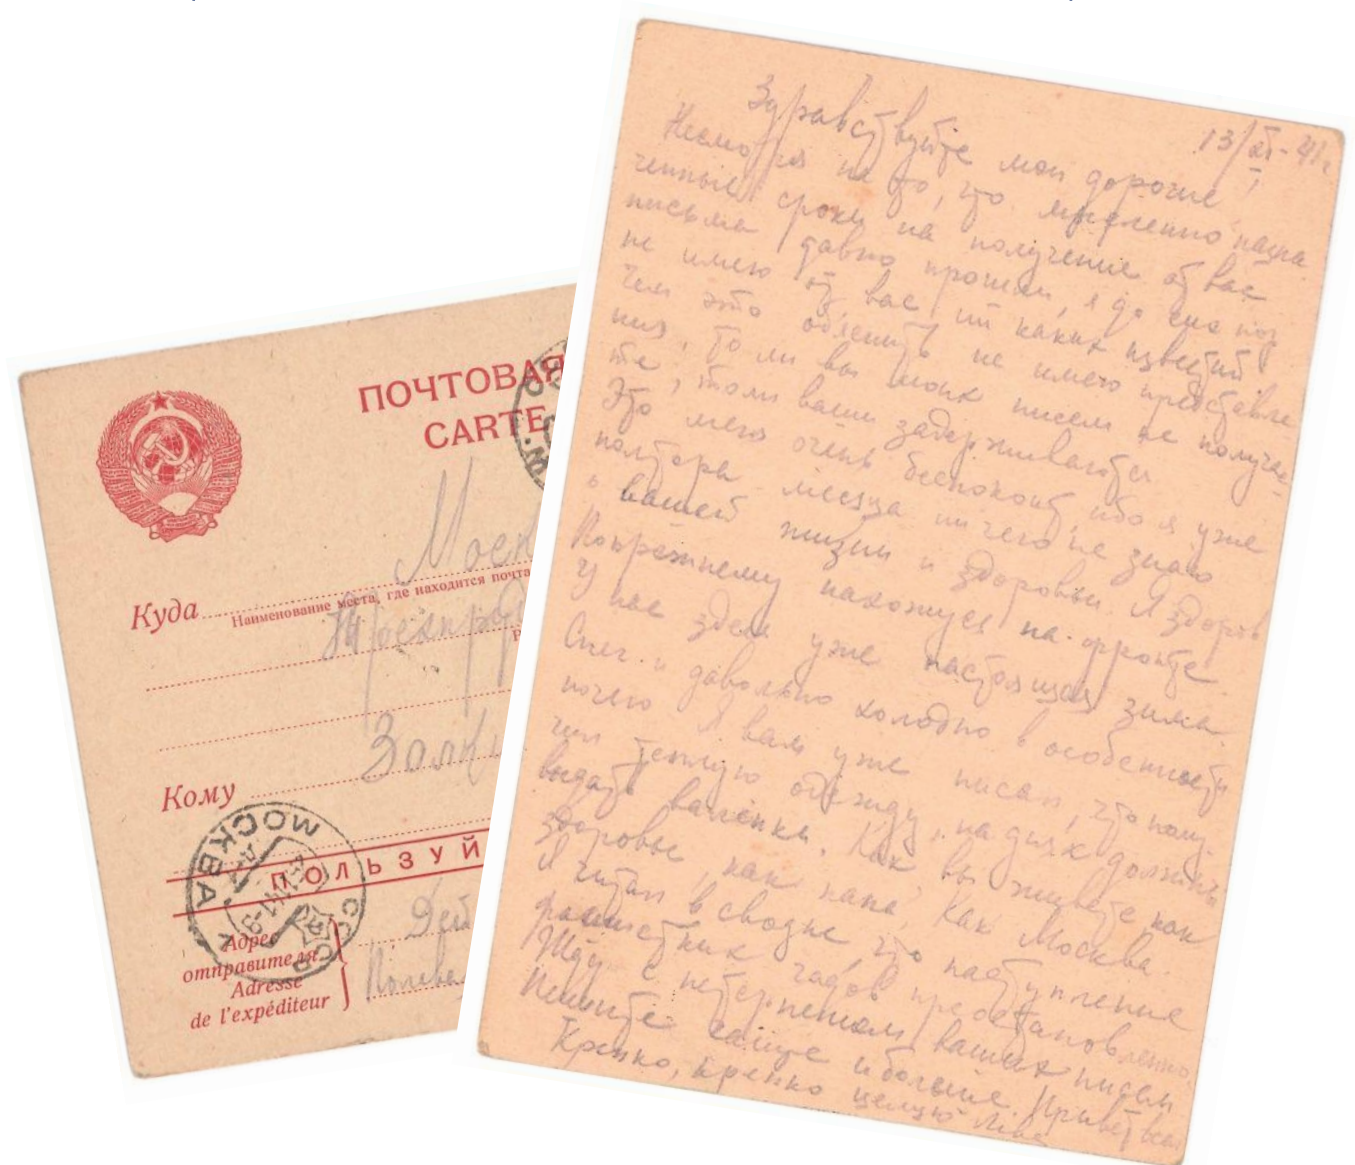 ПОЧТОВАЯ
CARTE
Моск
Куда
Наименование места, где находится почта
Трехпруд
Кому
Залк
ПОЛЬЗУЙ
МОСКВА
СССР
Адрес
отправителя
Adresse
de l'expéditeur
Дей
Полева
13/XI-41г
Здравствуйте мои дорогие,
Несмотря на то, что мысленно назна
ченные сроки на получение от вас
письма давно прошли, я до сих пор
не имею от вас ни каких известий
Чем это объяснить не имею представле
ния, то ли вы моих писем не получае
те, толи ваши задерживаются
Это меня очень беспокоит, ибо я уже
полтора месяца ничего не знаю
о вашей жизни и здоровьи. Я здоров
Попрежнему нахожусь на фронте.
У нас здесь уже настоящая зима
Снег и довольно холодно в особенности
ночью Я вам уже писал, что полу-
чил теплую одежду, на днях должны
выдать валенки. Как вы живете, как
здоровье, как папа, Как Москва.
Я читал в сводке, что наступление
фашистких гадов преостановленно.
Жду с нетерпением ваших писем
Пишите чаще и больше. Привет всем
Крепко, крепко целую